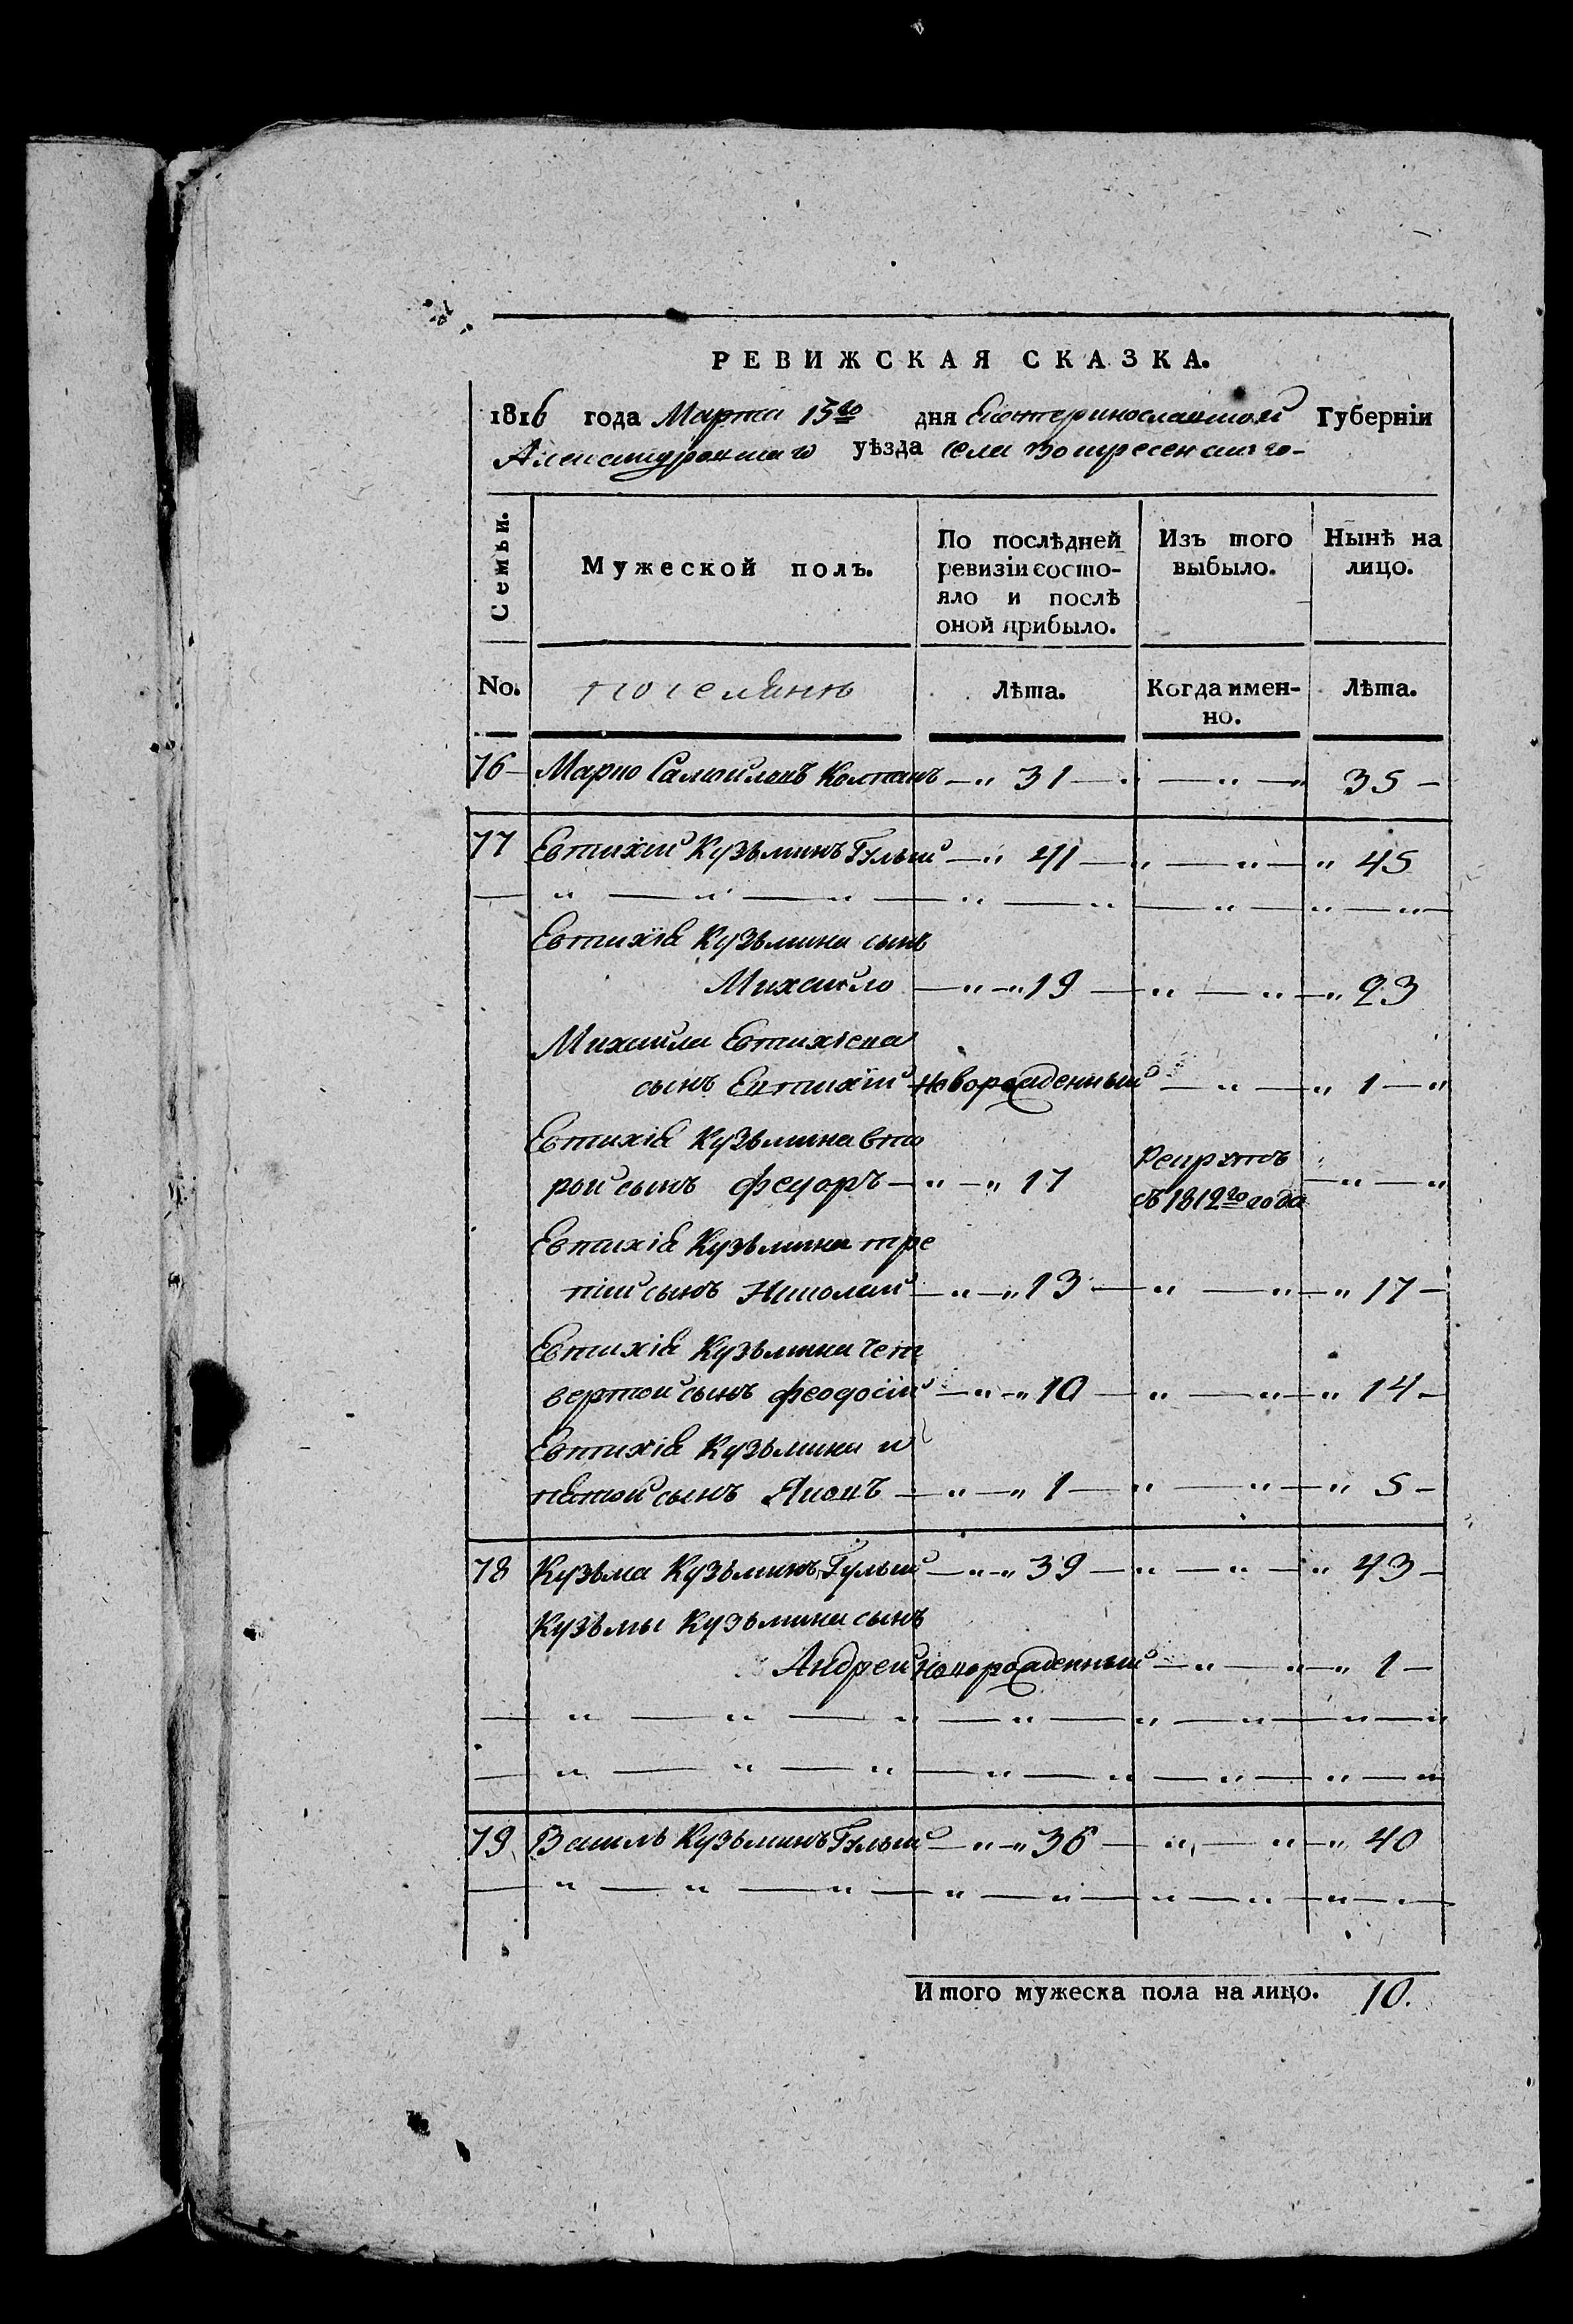 РЕВИЖСКАЯ СКАЗКА.
1816 года Марта 15го дня Екатеринославской Губерніи
Александровскаго уѣзда села Воскресенскаго
Семьи.
Мужеской полъ.
По послѣдней ревизіи состо-
яло и послѣ
оной прибыло.
Изъ того
выбыло.
Нынѣ на
лицо.
No. поселянъ Лѣта. Когда имен-
но. Лѣта.
76 Марко Самойловъ 31 35
77 Евтихій Кузьминъ Гулый 41 45
Евтихія Кузьмина сынъ
Михайло 19 23
Михайла Евтихіева
сынъ Евтихій новорожденный 1
Евтихія Кузьмина вто
рой сынъ Федоръ 17 Рекрутъ
съ 1812го года
Евтихія Кузьмина тре
тій сынъ Николай 13 17
Евтихія Кузьмина чет
вертой сынъ Феодосій 10 14
Евтихія Кузьмина
пятой сынъ Яковъ 1 5
78 Кузьма Кузьминъ Гулый 39 43
Кузьмы Кузьмина сынъ
Андрей новорожденный 1
79 Василь Кузьминъ Гулый 36 40
Итого мужеска пола на лицо. 10.